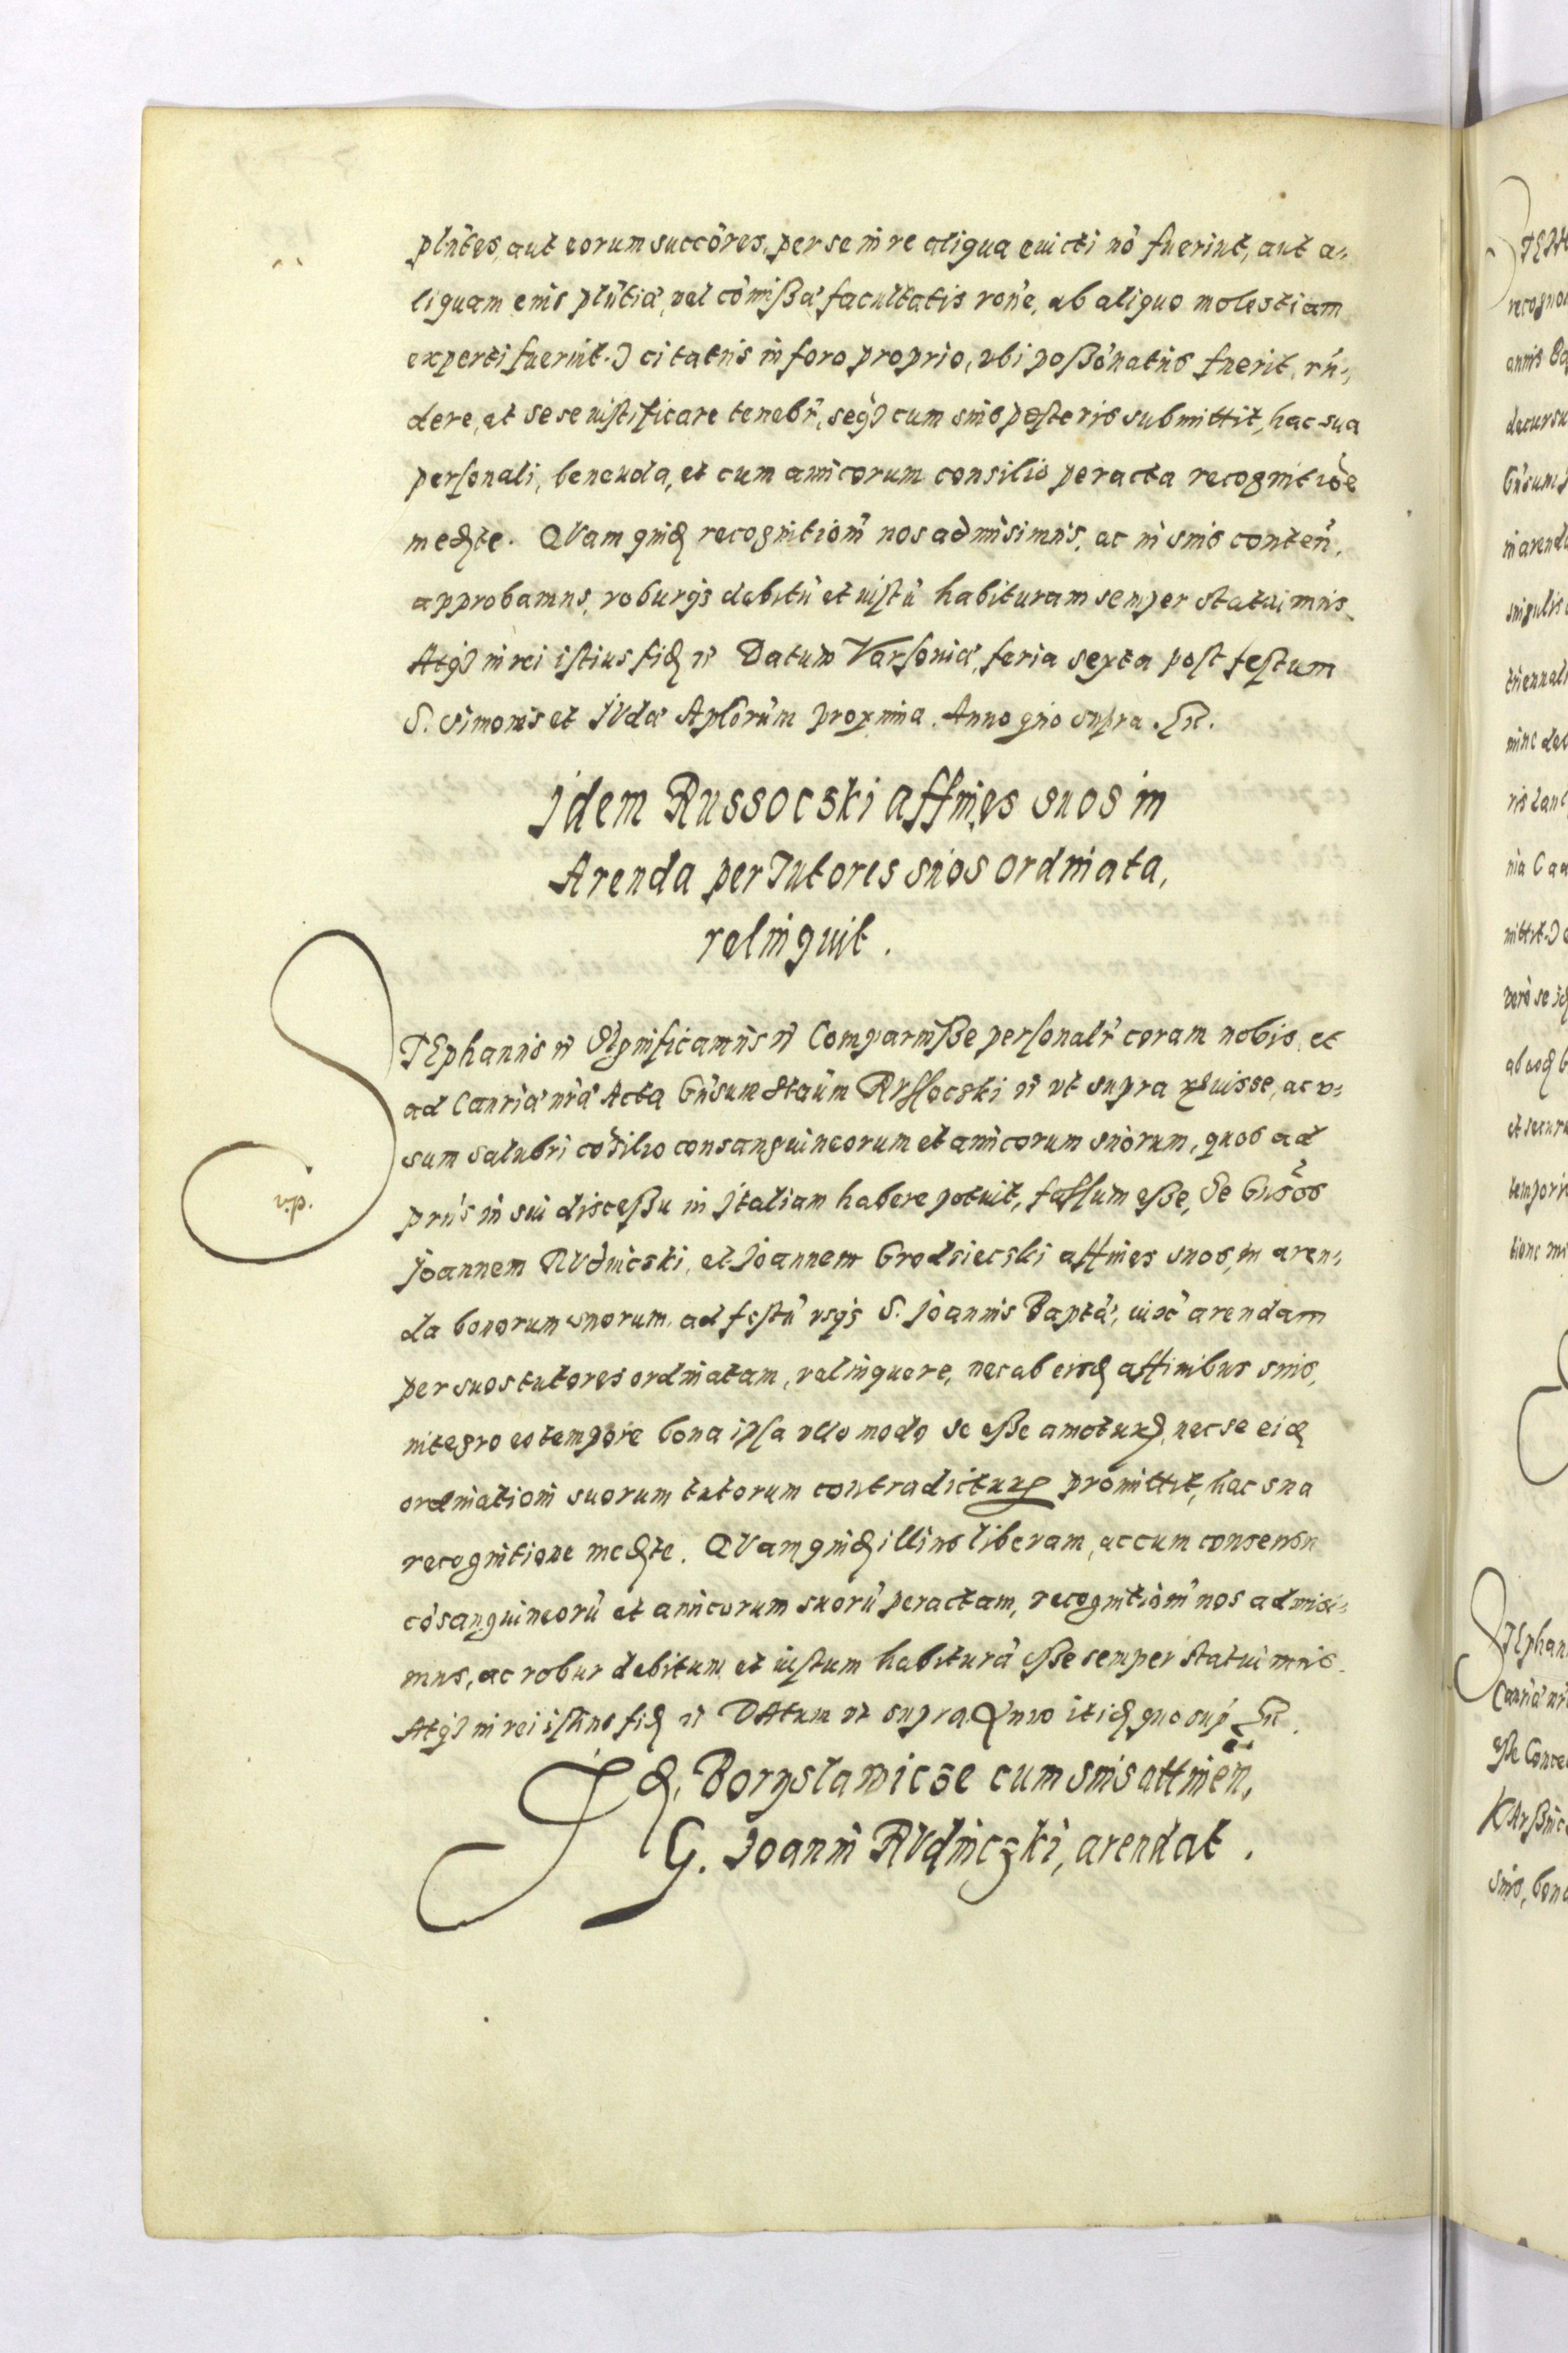 plñtes, aut eorum succores, per se in re aliqua euicti nō fuerint, aut a-
liquam eius plñtiā, vel cōmißā facultatis rone, ab aliquo molestiam
experti fuerint. citatus in foro proprio, vbi poßōnatus fuerit, rñ-
dere, et sese iustificare tenebr̄, seq3 cum suis posteris submittit, hac sua
personali, beneuola, et cum amicorum consilio peracta recognitiōe
medte. QVam quid recognitiōm nos admisimus, ac in suis conteñ.
approbamus, roburq3 debitū et iustū habituram semper statuimus
Atq3 in rei istius fid Datum Varsouiæ, feria sexta post festum
S. Simonis et IVdæ Aplōrum proxima. Anno quo supra.
Idem Russocski affines suos in
Arenda per Tutores suos ordinata,
relinquit.
STEphanus Significamus Comparuiße personalr̄ coram nobis, et
ad Canriā nrā Acta Gñsum Staūm RVssocski vt supra, ac v-
sum salubri cōsilio consanguineorum et amicorum suorum, quos ad
prūs in sui discessu in Italiam habere potuit, fassum eße, Se Gñsos
Joannem RVdnicski, et Joannem Grodsiecski affines suos, in aren-
da bonorum suorum, ad festū vsq3 S. Joannis Baptæ, iuxᵃ arendam
per suos tutores ordinatam, relinquere, nec ab eisd affinibus suis,
integro eo tempore bona ipsa ullo modo se eße amoturū, nec se eid
ordinationi suorum tutorum contradicturū promittit, hac sua
recognitione medte. QVam quid illius liberam, ac cum consensu
cōsanguineorū et amicorum suorū peractam, recognitiōm nos admisi-
mus, ac robur debitum et iustum habiturā eße semper statuimus.
Atq3 in rei istius fid DAtum vt supra Anno itid quo sup̄
Id. Boryslawicze cum suis attineñ,
G. Joanni RVdniczki, arendat.